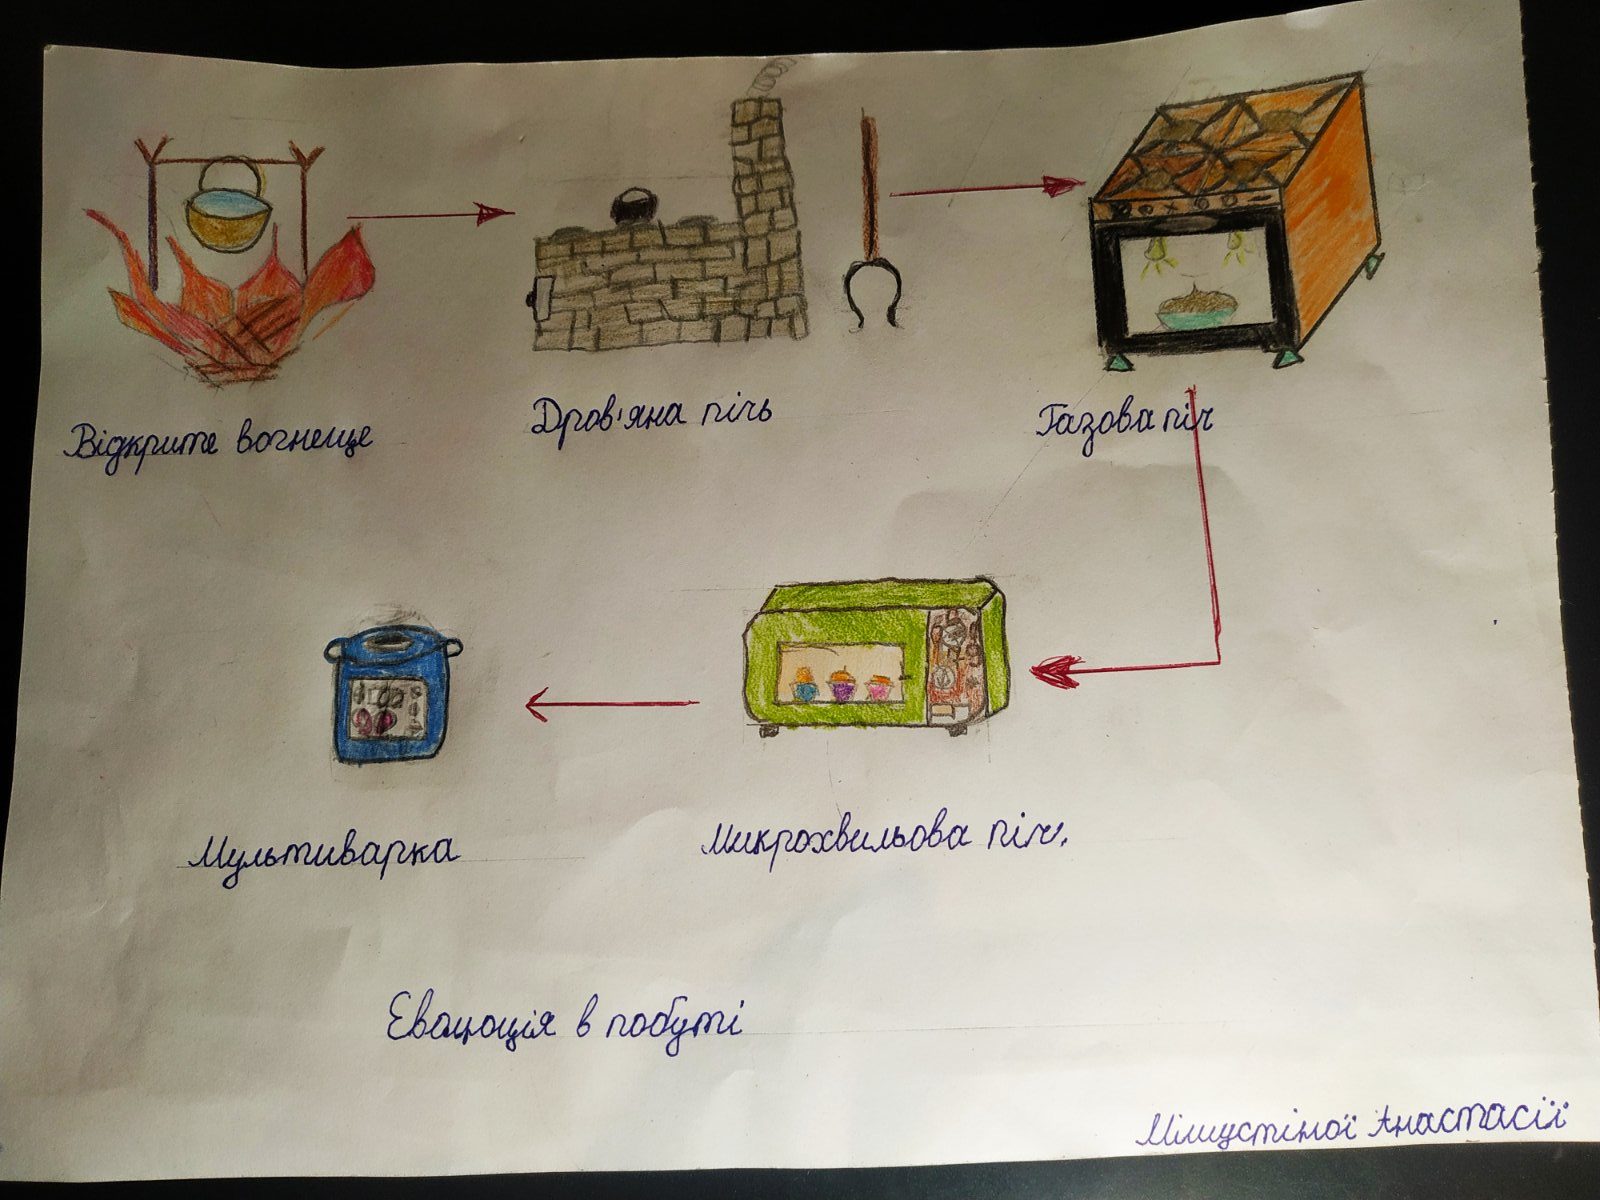 Відкрите вогнище
Дров'яна пічь
Газова піч
Мультиварка
Микрохвильова піч.
Еволюція в побуті
Мілшустіної Анастасії